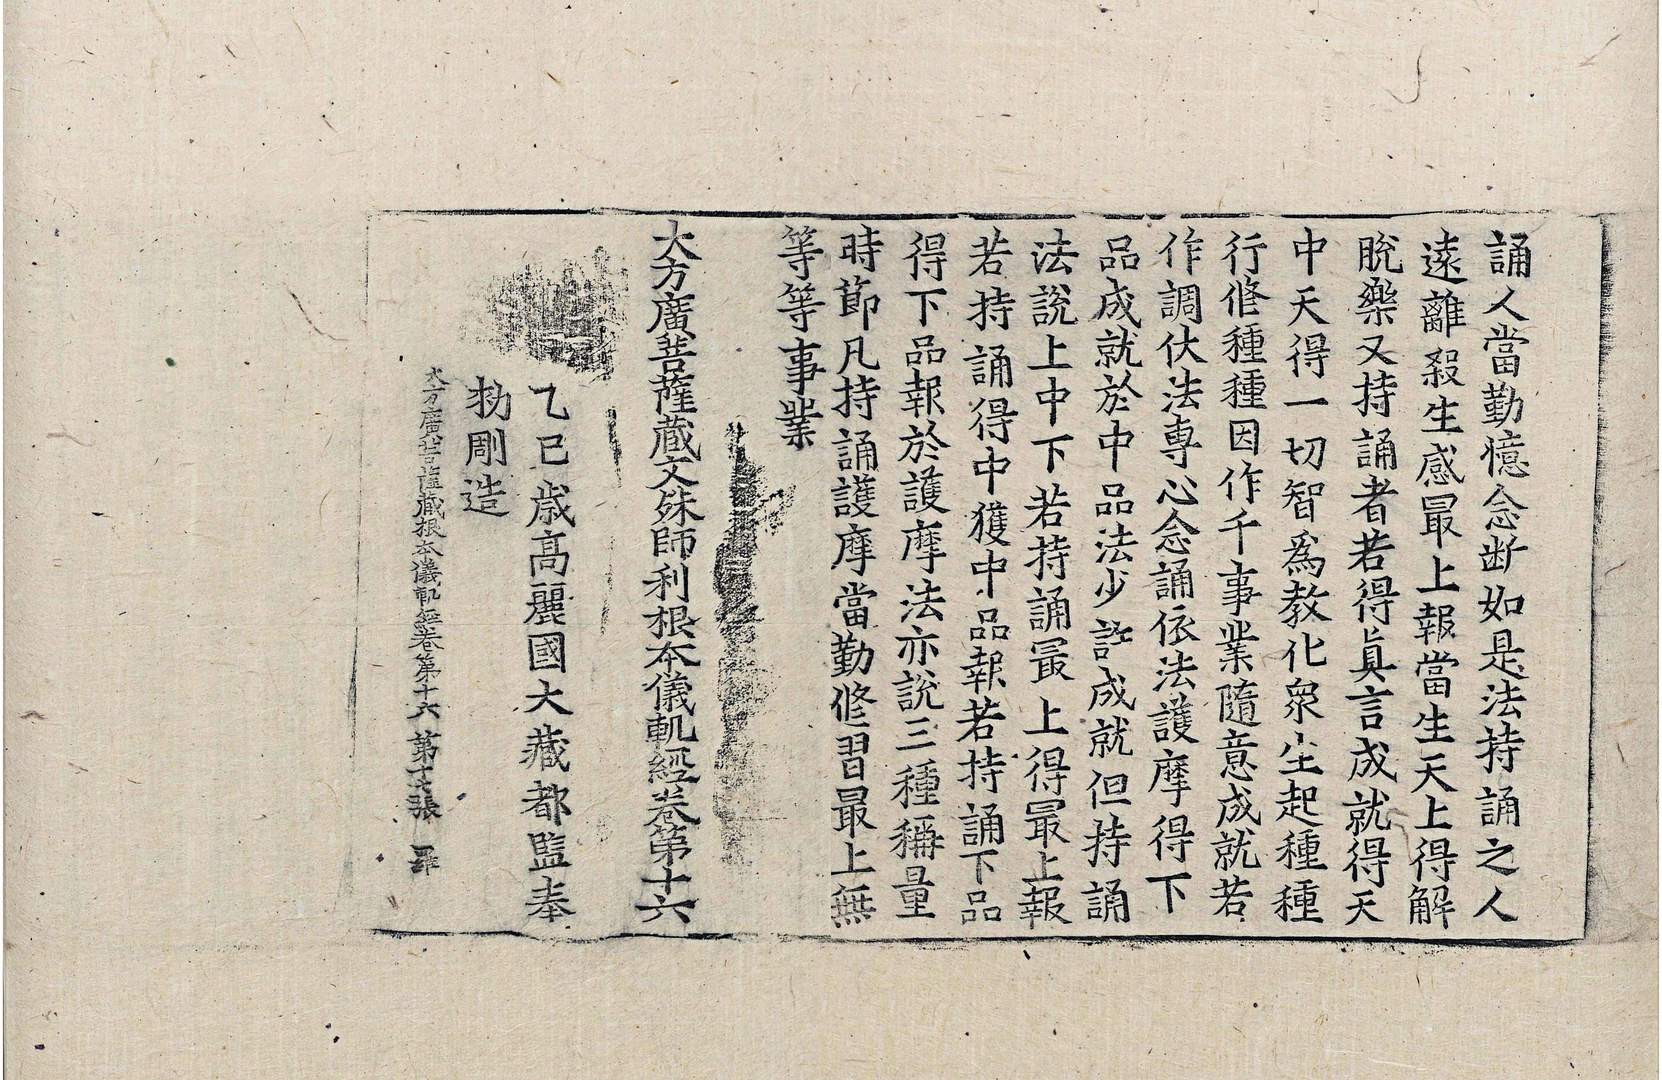 誦人當勤憶念断如是法持誦之人
遠離殺生感最上報當生天上得解
脫樂又持誦者若得眞言成就得天
中天得一切智爲教化衆生起種種
行修種種因作千事業隨意成就若
作調伏法専心念誦依法護摩得下
品成就於中品法少許成就但持誦
法說上中下若持誦冣上得冣上報
若持誦得中獲中品報若持誦下品
得下品報於護摩法亦說三種稱量
時節凡持誦護摩當勤修習最上無
等等事業
大方廣菩薩藏文殊師利根本儀軌經卷第十六
乙巳歳高麗國大藏都監奉
勑彫造
大方廣菩薩藏根本儀軌經卷第十六 第十七張 羅